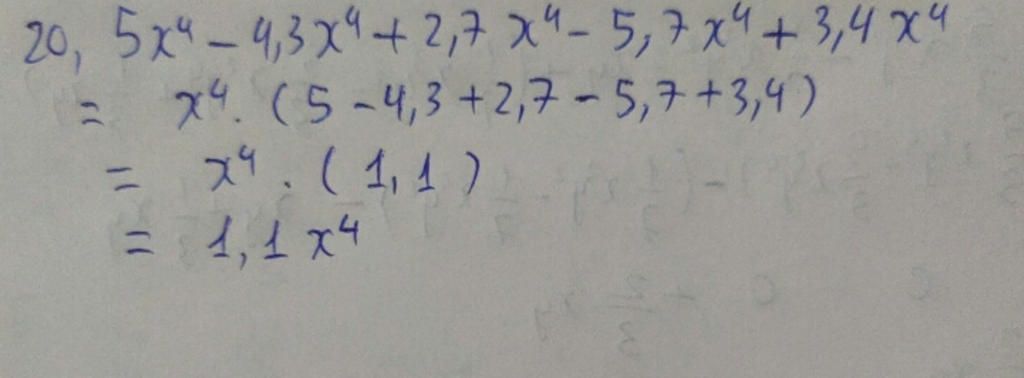 20, 5x⁴ - 4,3x⁴ + 2,7x⁴ - 5,7x⁴ + 3,4x⁴
= x⁴. (5 - 4,3 + 2,7 - 5,7 + 3,4)
= x⁴. (1,1)
= 1,1x⁴